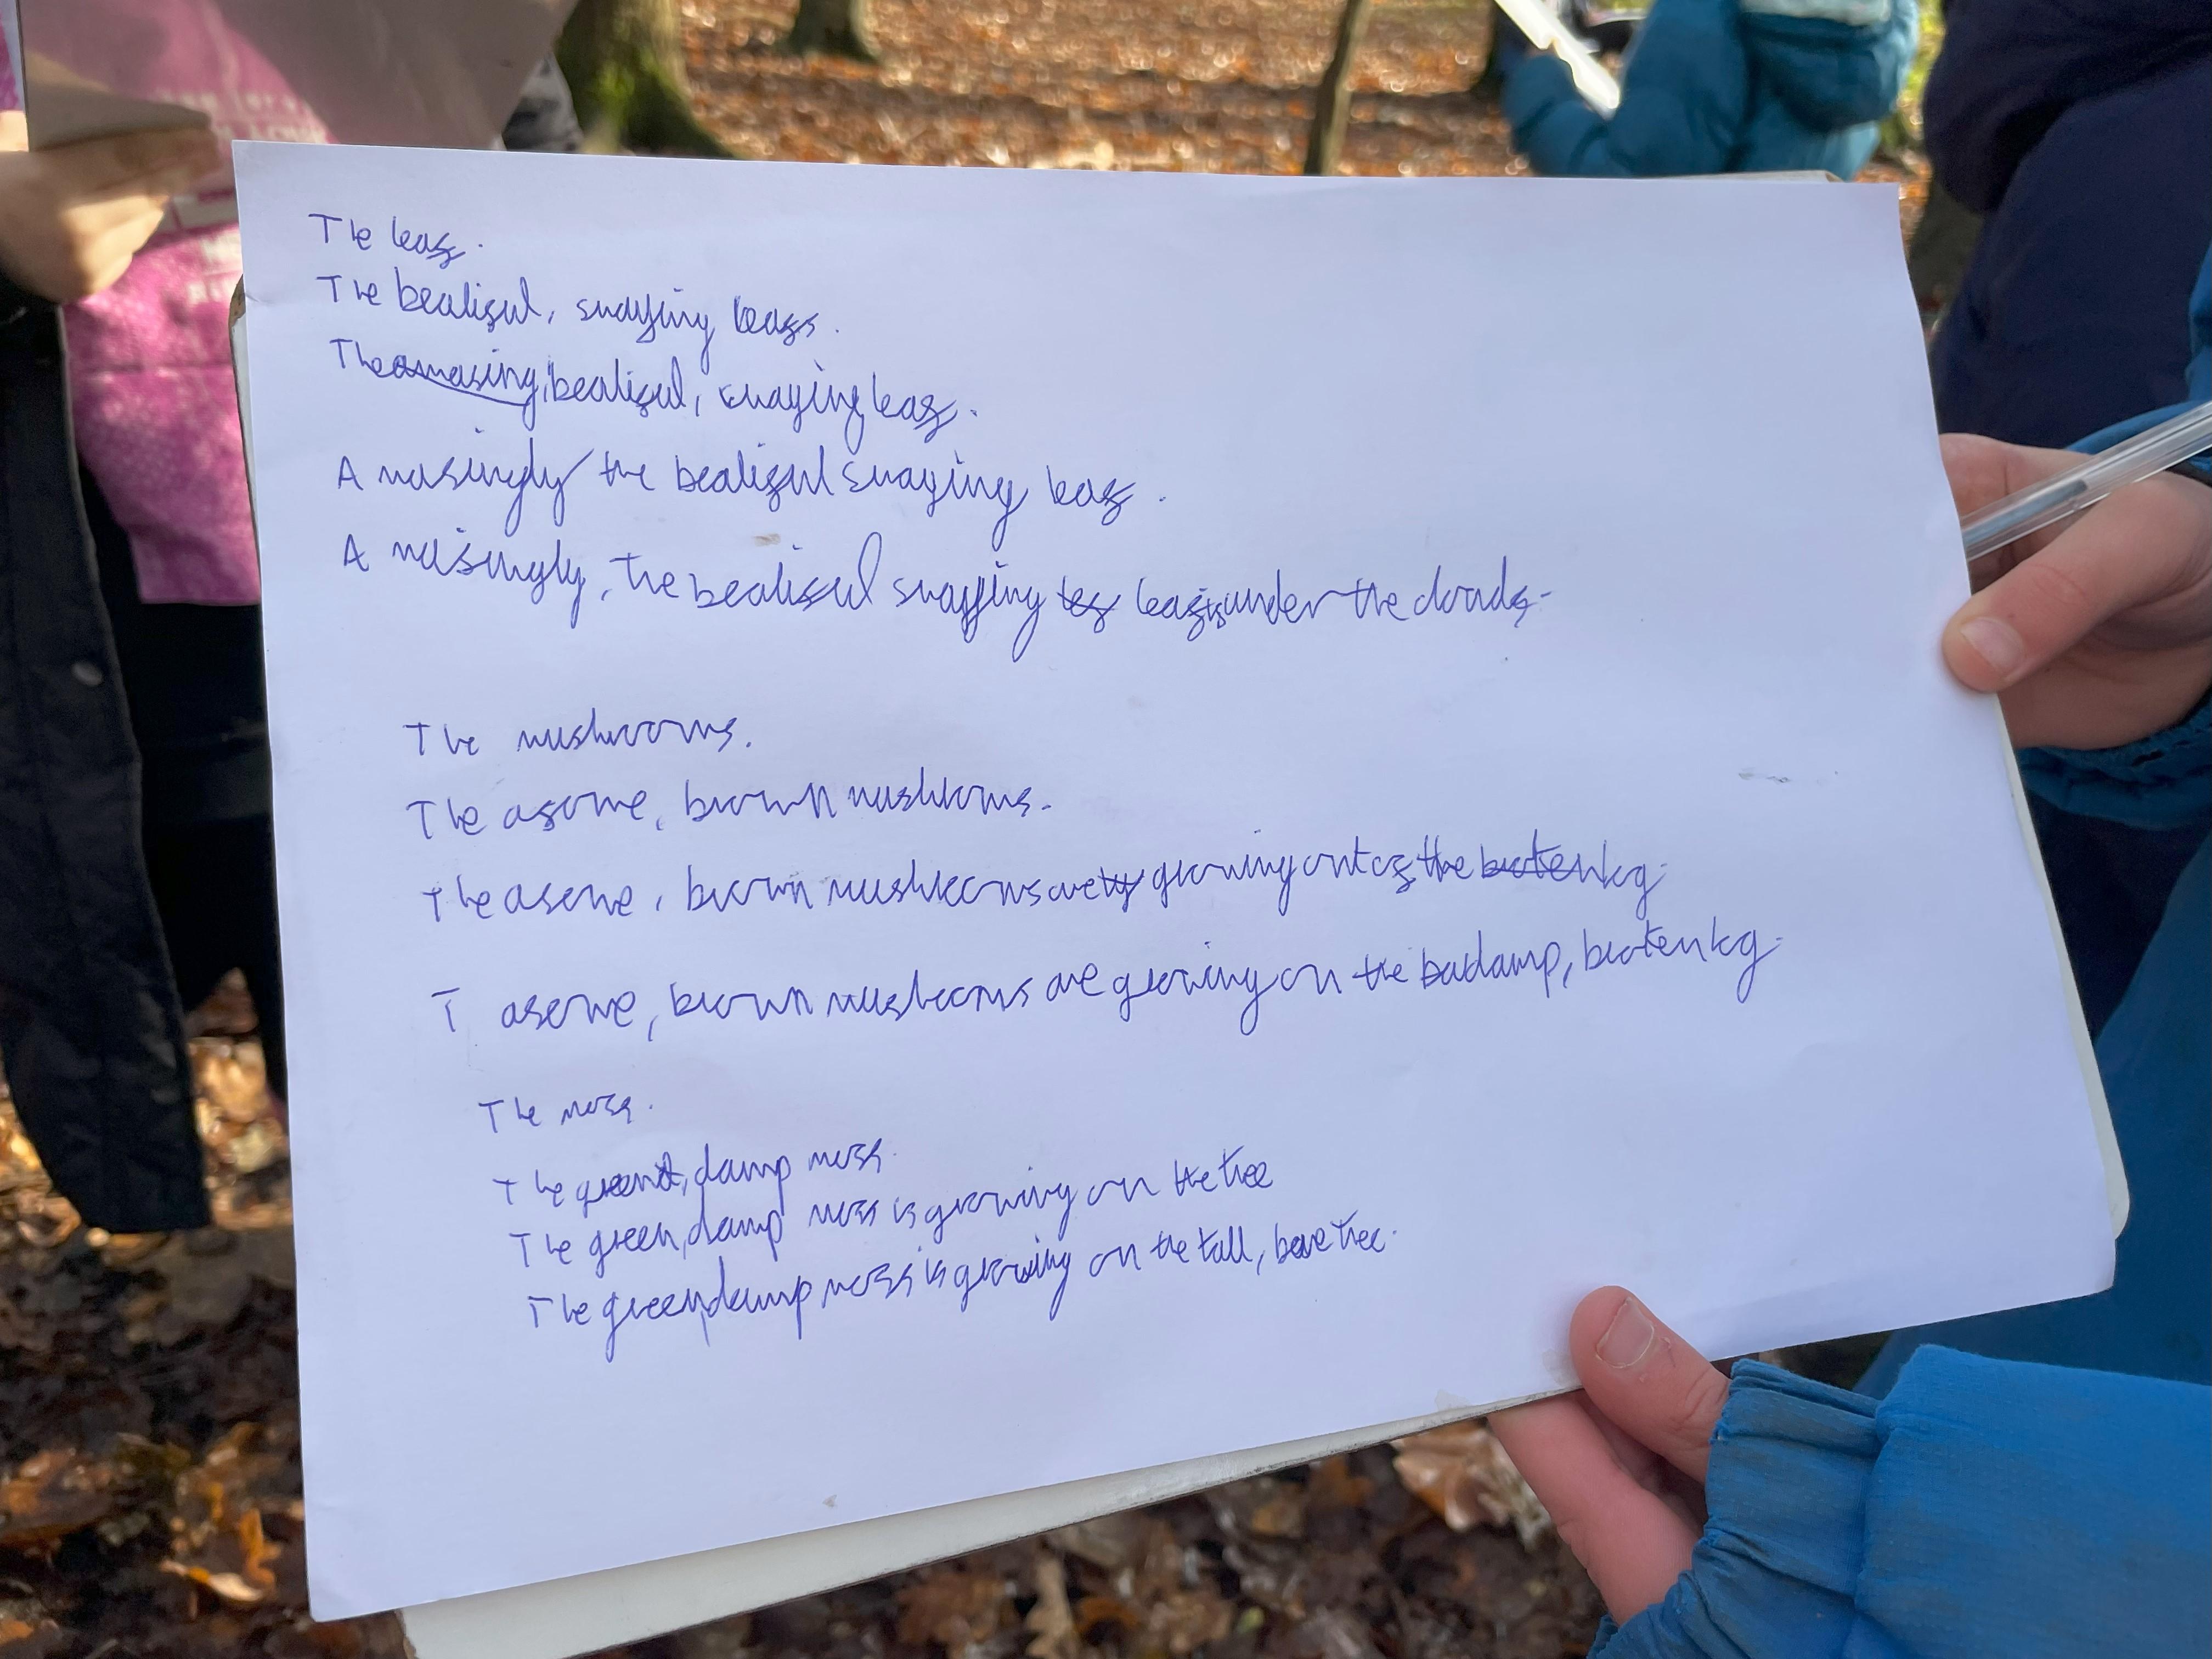 The leaf.
The bealiful, swaying leafs.
The amasing, bealiful, swaying leaf.
Amasingly the bealiful swaying leaf.
Amasingly, the bealiful swaying leaf is under the clouds.
The mushrooms.
The asome, brown mushroms.
The asome, brown mushrooms are growing out of the broten log.
T asome, brown mushrooms are growing on the damp, broten log.
The moss.
The green, damp moss.
The green, damp moss is growing on the tree
The green, damp moss is growing on the tall, bare tree.